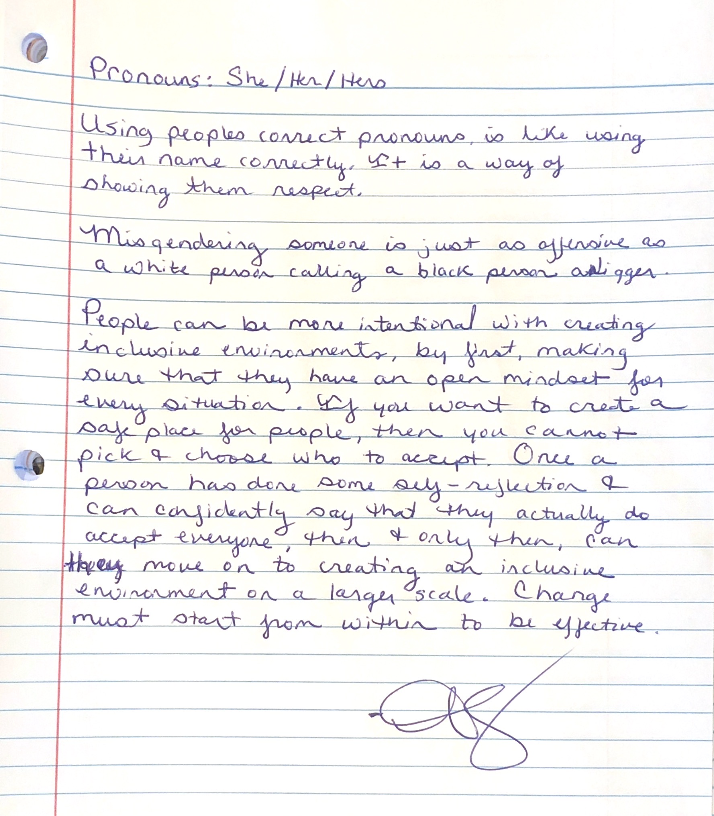 Pronouns: She/Her/Hers
Using peoples correct pronouns, is like using
their name correctly. It is a way of
showing them respect.
Misgendering someone is just as offensive as
a white person calling a black person a nigger.
People can be more intentional with creating
inclusive environments, by first, making
sure that they have an open mindset for
every situation. If you want to create a
safe place for people, then you cannot
pick & choose who to accept. Once a
person has done some self-reflection &
can confidently say that they actually do
accept everyone, then & only then, can
they move on to creating an inclusive
environment on a larger scale. Change
must start from within to be effective.